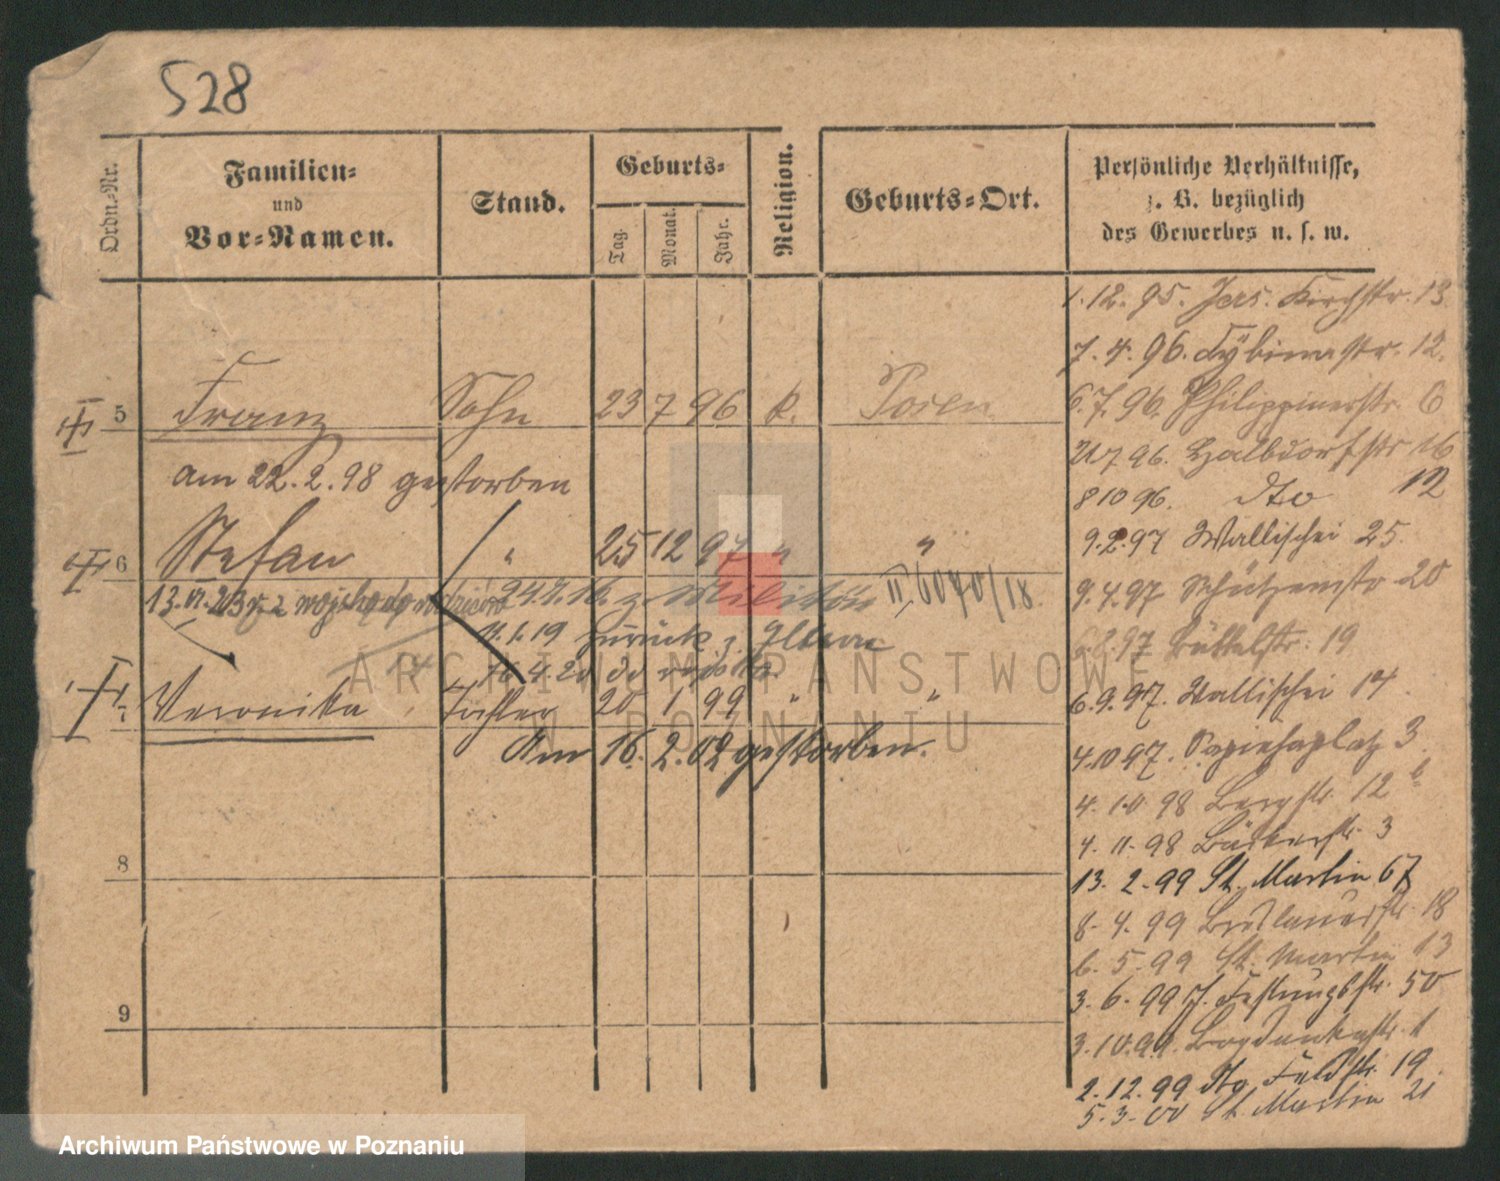 528
Ordn.-Nr.
Familien-
und
Vor-Namen.
Stand.
Geburts-
Tag.
Monat.
Jahr.
Religion.
Geburts-Ort.
Persönliche Verhältnisse,
z. B. bezüglich
des Gewerbes u. s. w.
5 Franz Sohn 23 7 96 k. Posen
am 22.2.98 gestorben
6 Stefan " 25 12 97 " "
13.VI.23 z wojska do
z. Militär
11.1.19 zurück z. Eltern
7 Veronika, Tochter 20 1 99 " "
Am 16.2.02 gestorben.
8
9
1.12.95. Jers. Kirchstr. 13
7.4.96. Zybinastr. 12.
6.7.96. Philippinerstr. 6
21.7.96. Halbdorfstr 16
8 10 96. dto 12
9.2.97 Wallischei 25.
9.4.97 Schützenstr 20
6.8.97 Büttelstr. 19
6.9.97. Wallischei 14.
4.10 97. Sapiehaplatz 3.
4.10 98 Bergstr. 12b
4.11.98 Bäckerstr. 3
13.2.99 St. Martin 67
8.4.99 Breslauerstr. 18
6.5.99 St. Martin 13
3.6.99 J. Festungsstr. 50
3.10.99. Bogdankastr. 1
2.12.99 Feldstr. 19.
5.3.00 St. Martin 21
ARCHIWUM PAŃSTWOWE
W POZNANIU
Archiwum Państwowe w Poznaniu